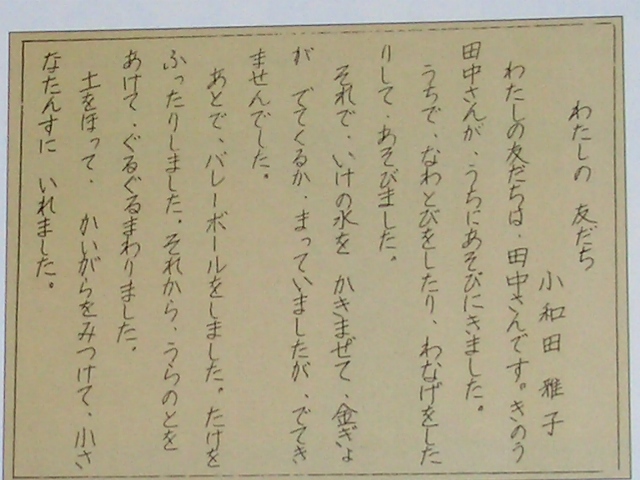 わたしの 友だち
小和田 雅子
わたしの友だちは、田中さんです。きのう
田中さんが、うちにあそびにきました。
うちで、なわとびをしたり、わなげをした
りして、あそびました。
それで、いけの水を かきまぜて、金ぎょ
が でてくるか、まっていましたが、でてき
ませんでした。
あとで、バレーボールをしました。たけを
ふったりしました。それから、うらのとを
あけて、ぐるぐるまわりました。
土をほって、 かいがらをみつけて、小さ
なたんすに いれました。